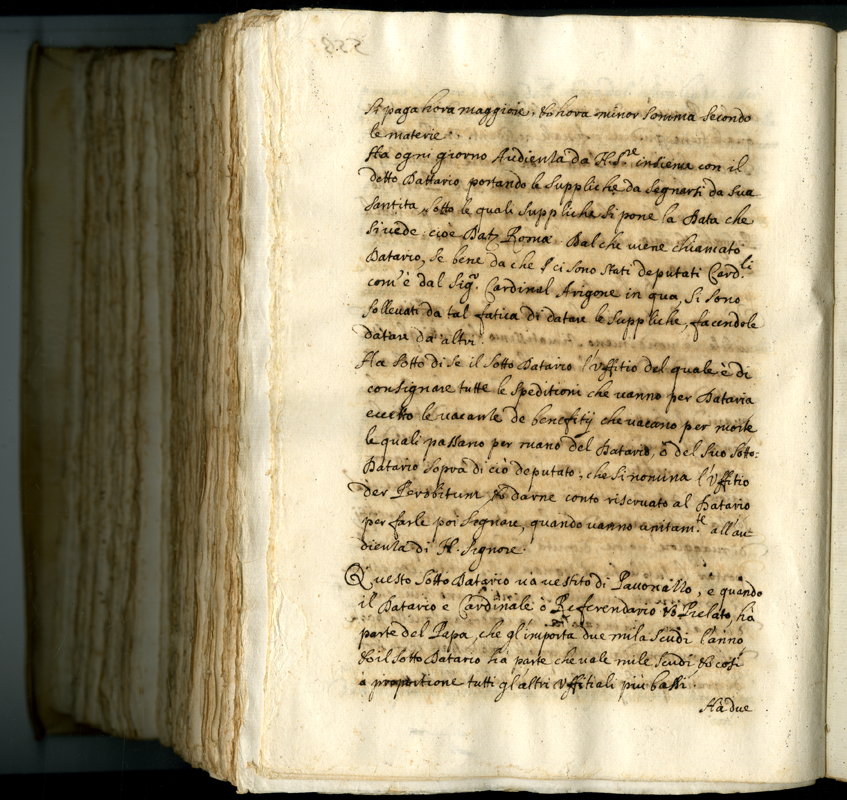 si paga hora maggiore, & hora minor somma secondo
le materie.
Ha ogni giorno Audienza da N. S.re insieme con il
detto Dattario portando le suppliche da segnarsi da sua
Santita, sotto le quali suppliche si pone la Data che
si vede cioè Dat. Romæ. Dal che viene chiamato
Datario, se bene da che ci sono stati deputati Card.li
com'è dal Sig.r Cardinal Arigone in qua, si sono
solleuati da tal fatica di datare le suppliche, facendole
datare da altri.
Ha sotto di se il sotto Datario l'vffitio del quale è di
consignare tutte le speditioni che vanno per Dataria
eccetto le vacante de benefitij che vacano per morte
le quali passano per mano del Datario, ò del suo sotto:
Datario sopra di ciò deputato, che si nomina l'Vffitio
der Per obitum & darne conto riseruato al Datario
per farle poi segnare, quando vanno unitam.te all'au
dienza di N. Signore.
Questo sotto Datario va vestito di Pauonazzo, e quando
il Datario è Cardinale ò Referendario & Prelato, ha
parte del Papa, che gl'importa due mila scudi l'anno
& il sotto Datario ha parte che vale mile scudi & così
a propositione tutti gl'altri vffitiali più bassi.
Ha due